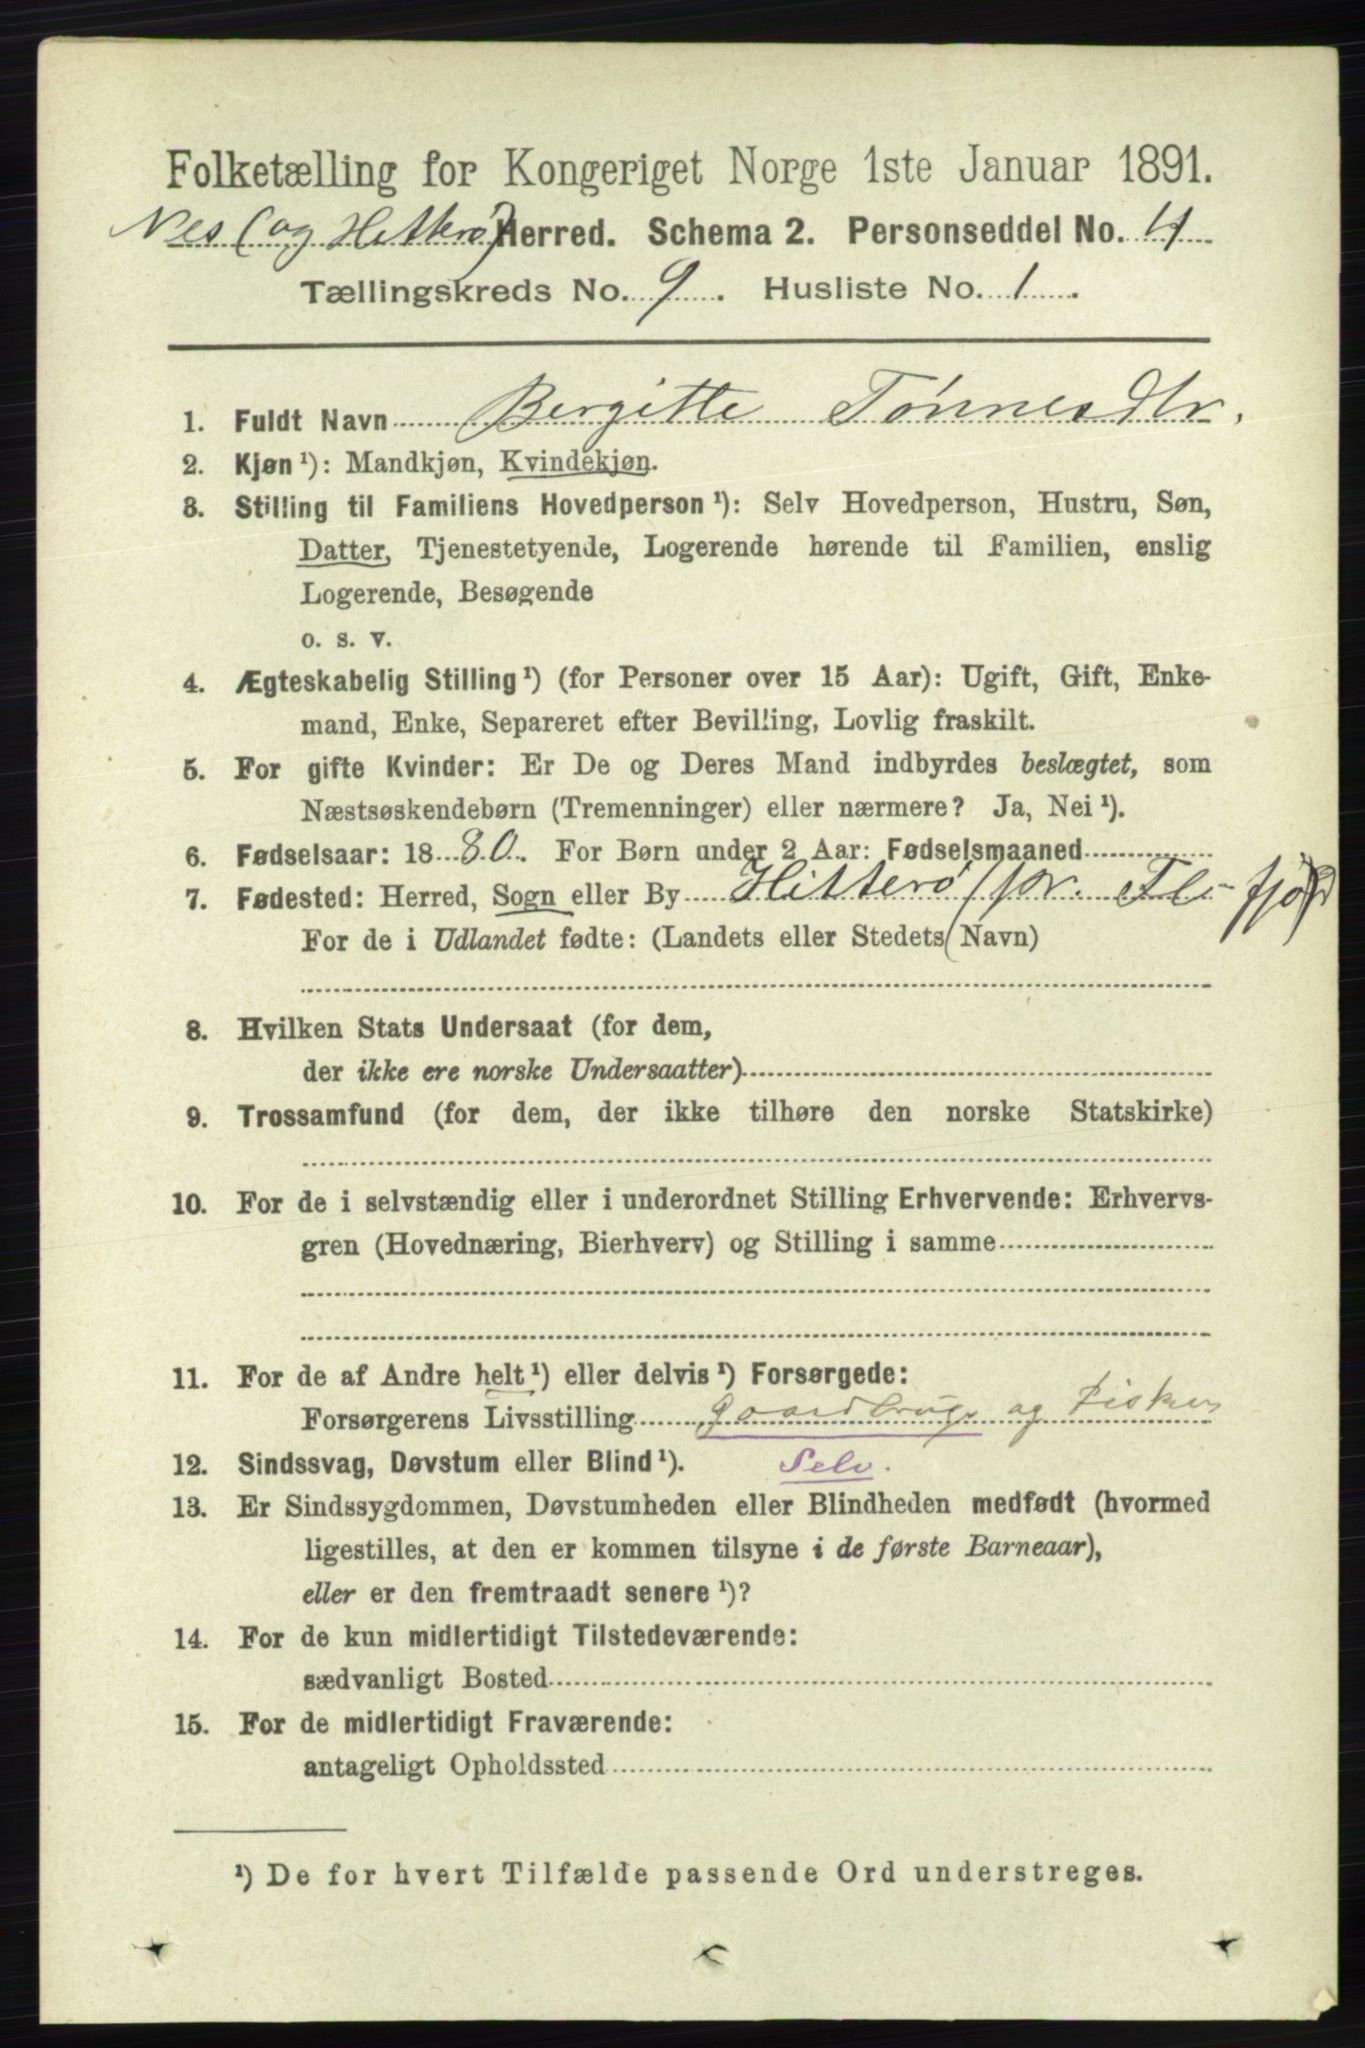 Folketælling for Kongeriget Norge 1ste Januar 1891.
Nes (og Hitterø) Herred. Schema 2. Personseddel No. 4
Tællingskreds No. 9. Husliste No. 1.
1. Fuldt Navn Bergitte Tønnesdtr.
2. Kjøn ¹): Mandkjøn, Kvindekjøn.
3. Stilling til Familiens Hovedperson ¹): Selv Hovedperson, Hustru, Søn,
Datter, Tjenestetyende, Logerende hørende til Familien, enslig
Logerende, Besøgende
o. s. v.
4. Ægteskabelig Stilling ¹) (for Personer over 15 Aar): Ugift, Gift, Enke-
mand, Enke, Separeret efter Bevilling, Lovlig fraskilt.
5. For gifte Kvinder: Er De og Deres Mand indbyrdes beslægtet, som
Næstsøskendebørn (Tremenninger) eller nærmere? Ja, Nei ¹).
6. Fødselsaar: 1880. For Børn under 2 Aar: Fødselsmaaned
7. Fødested: Herred, Sogn eller By Hitterø (pr. Flefjord)
For de i Udlandet fødte: (Landets eller Stedets Navn)
8. Hvilken Stats Undersaat (for dem,
der ikke ere norske Undersaatter)
9. Trossamfund (for dem, der ikke tilhøre den norske Statskirke)
10. For de i selvstændig eller i underordnet Stilling Erhvervende: Erhvervs-
gren (Hovednæring, Bierhverv) og Stilling i samme
11. For de af Andre helt ¹) eller delvis ¹) Forsørgede:
Forsørgerens Livsstilling Gaardbruger og Fisker
12. Sindssvag, Døvstum eller Blind ¹). Selv.
13. Er Sindssygdommen, Døvstumheden eller Blindheden medfødt (hvormed
ligestilles, at den er kommen tilsyne i de første Barneaar),
eller er den fremtraadt senere ¹)?
14. For de kun midlertidigt Tilstedeværende:
sædvanligt Bosted
15. For de midlertidigt Fraværende:
antageligt Opholdssted
¹) De for hvert Tilfælde passende Ord understreges.